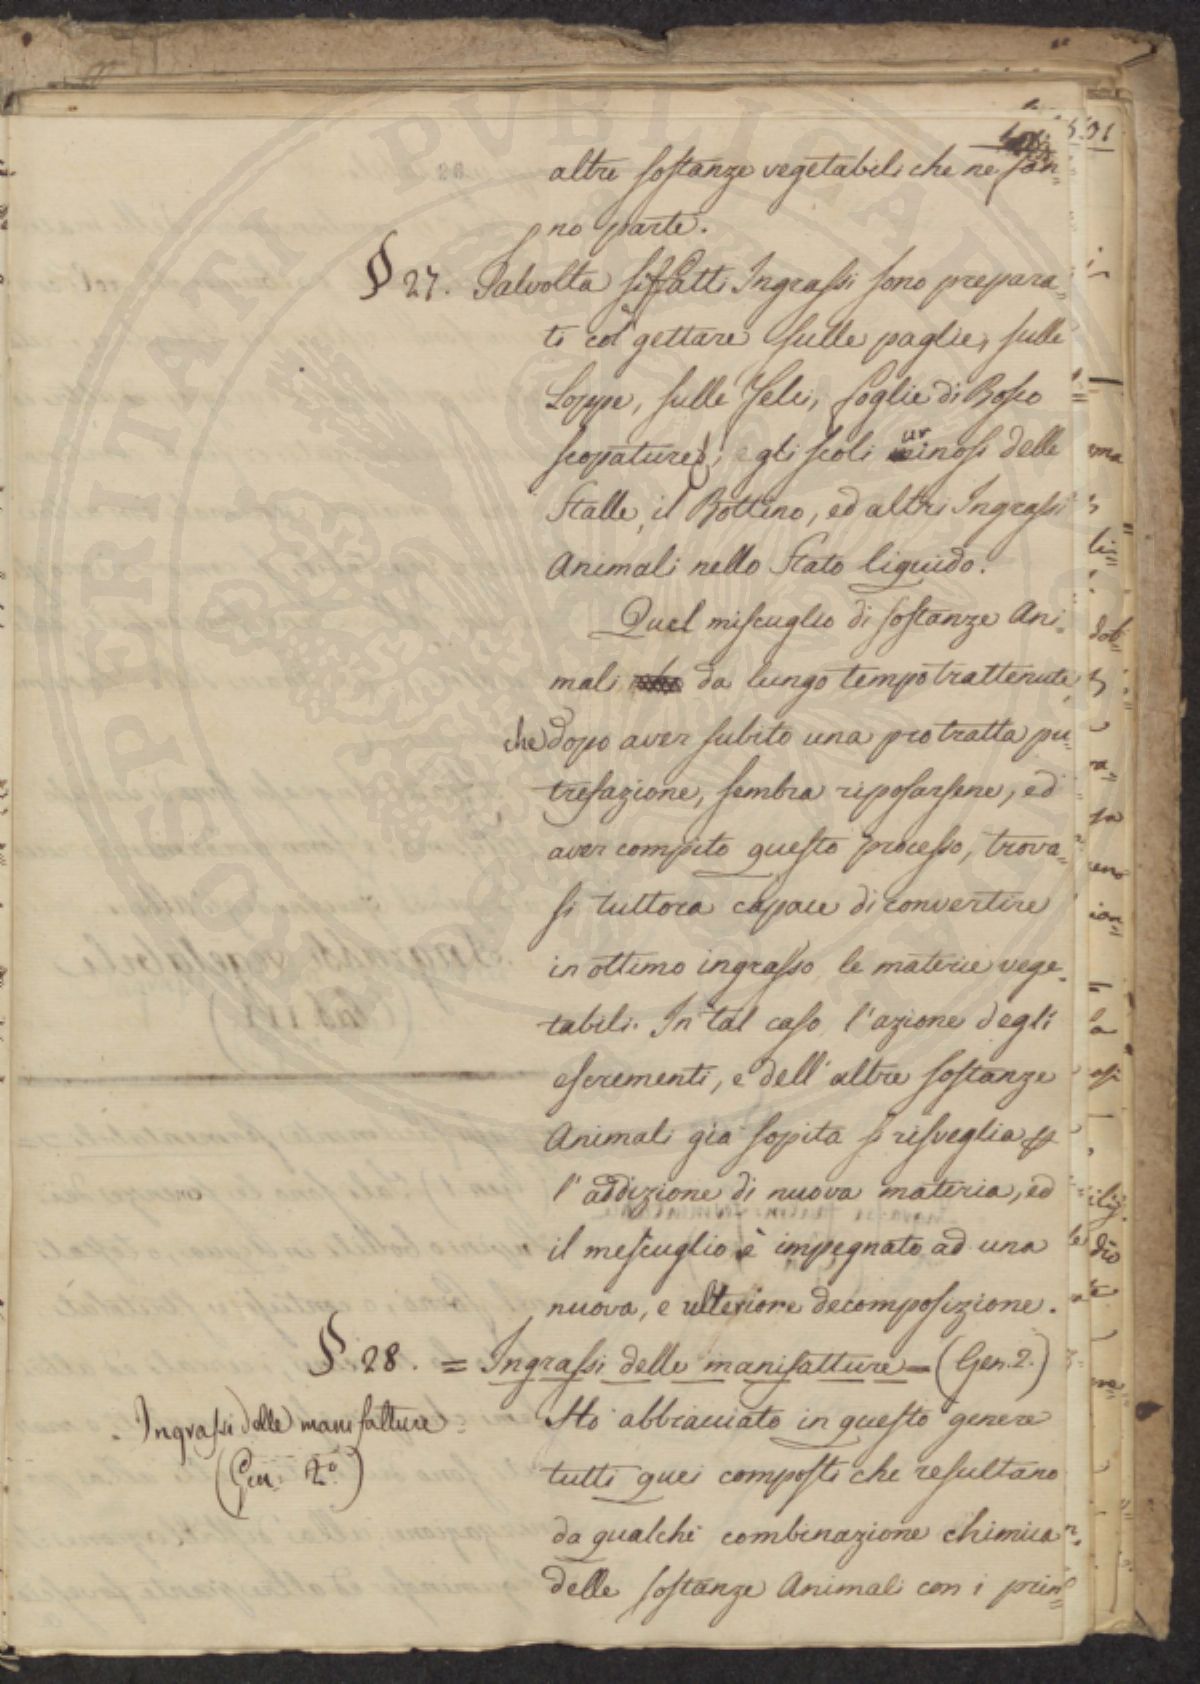 altre sostanze vegetabili che ne fan=
no parte.
§ 27. Talvolta siffatti Ingrassi sono prepara=
ti col gettare sulle paglie, sulle
Loppe, sulle Felci, foglie di Bosco
scopature, gli scoli urinosi delle
Stalle, il Bottino, ed altri Ingrassi
Animali nello Stato liquido.
Quel miscuglio di sostanze Ani=
mali da lungo tempo trattenute,
che dopo aver subito una protratta pu=
trefazione, sembra riposarsene, ed
aver compito questo processo, trova=
si tuttora capace di convertire
in ottimo ingrasso le materie vege=
tabili. In tal caso l'azione degli
escrementi, e dell'altre sostanze
Animali già sopita si risveglia p
l'addizione di nuova materia, ed
il mescuglio è impegnato ad una
nuova, e ulteriore decomposizione.
§ 28. = Ingrassi delle manifatture = (Gen. 2.)
Ingrassi delle manifatture
(Gen: 2°.)
Ho abbracciato in questo genere
tutti quei composti che resultano
da qualche combinazione chimica
delle sostanze Animali con i prin=